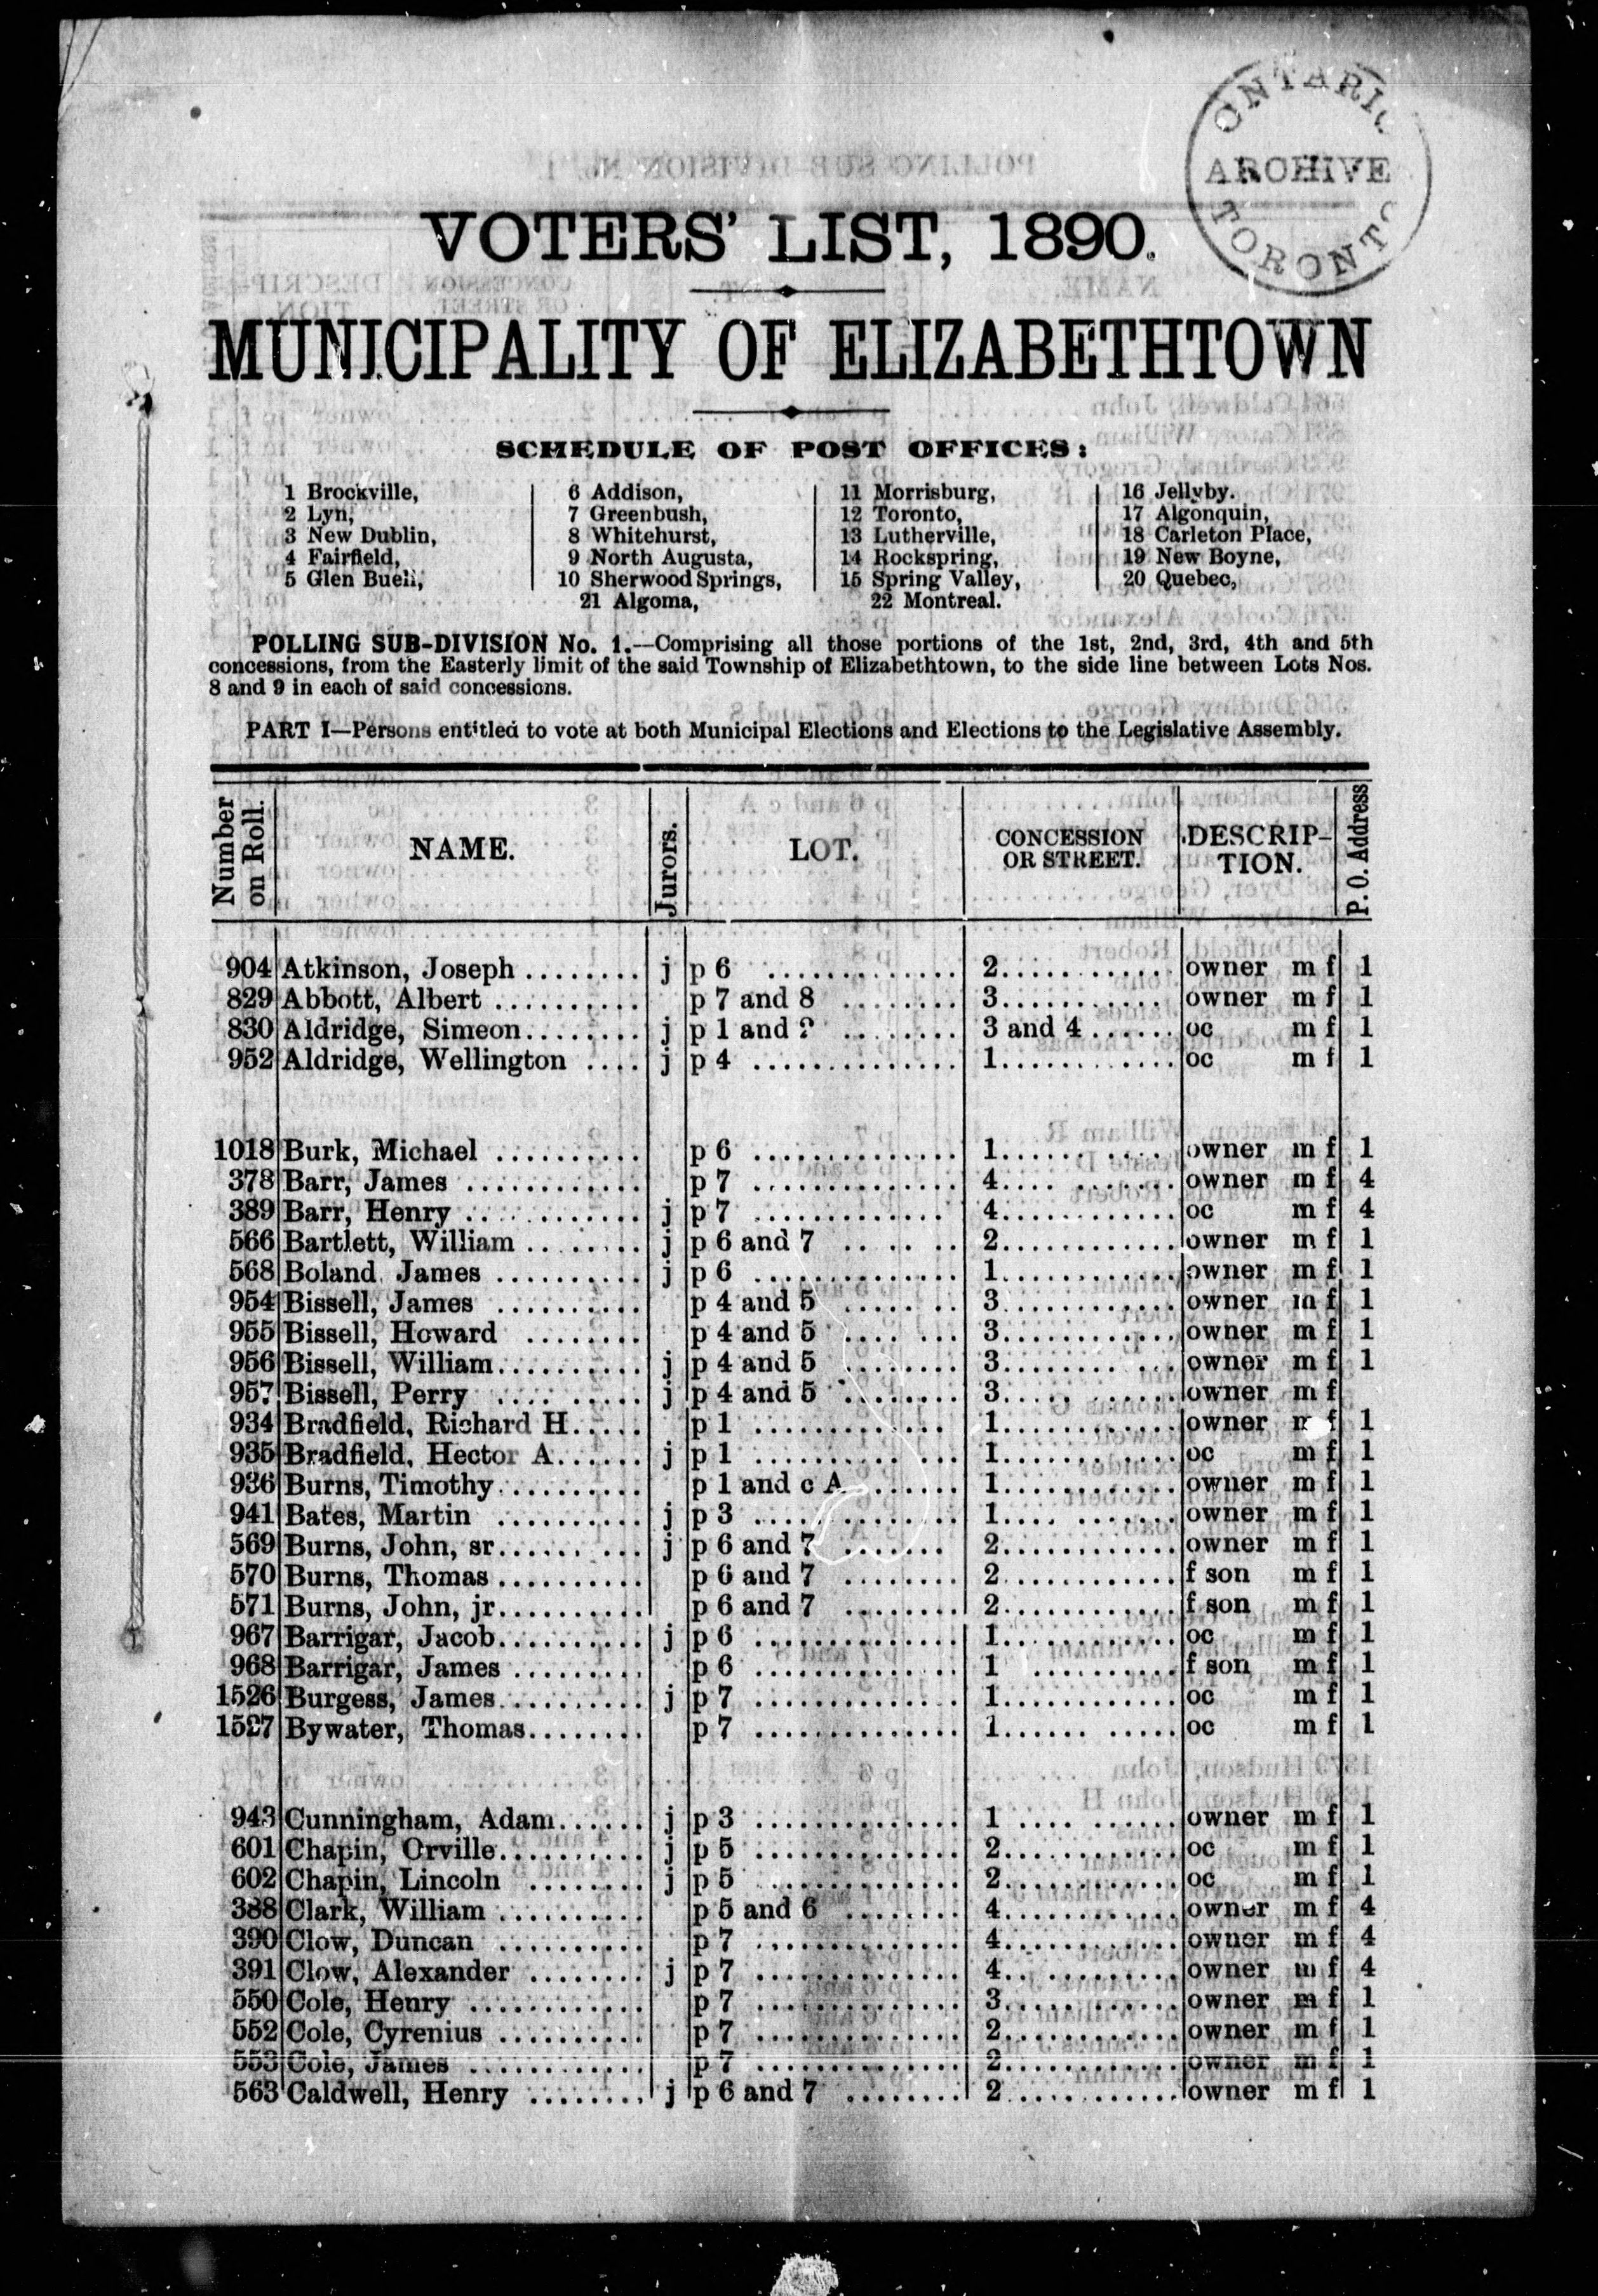 ONTARIO
ARCHIVE
TORONTO
VOTERS' LIST, 1890.
MUNICIPALITY OF ELIZABETHTOWN
SCHEDULE OF POST OFFICES:
1 Brockville, 6 Addison, 11 Morrisburg, 16 Jellyby.
2 Lyn, 7 Greenbush, 12 Toronto, 17 Algonquin,
3 New Dublin, 8 Whitehurst, 13 Lutherville, 18 Carleton Place,
4 Fairfield, 9 North Augusta, 14 Rockspring, 19 New Boyne,
5 Glen Buell, 10 Sherwood Springs, 15 Spring Valley, 20 Quebec,
21 Algoma, 22 Montreal.
POLLING SUB-DIVISION No. 1.—Comprising all those portions of the 1st, 2nd, 3rd, 4th and 5th
concessions, from the Easterly limit of the said Township of Elizabethtown, to the side line between Lots Nos.
8 and 9 in each of said concessions.
PART I—Persons entitled to vote at both Municipal Elections and Elections to the Legislative Assembly.
Number on Roll. NAME. Jurors. LOT. CONCESSION OR STREET. DESCRIPTION. P. O. Address
904 Atkinson, Joseph ........ j p 6 ............. 2............ owner m f 1
829 Abbott, Albert .......... p 7 and 8 ........ 3........... owner m f 1
830 Aldridge, Simeon........ j p 1 and ? ........ 3 and 4 ...... oc m f 1
952 Aldridge, Wellington .... j p 4 .............. 1............ oc m f 1
1018 Burk, Michael .......... p 6 .............. 1............ owner m f 1
378 Barr, James ............ p 7 .............. 4............ owner m f 4
389 Barr, Henry ............ j p 7 ............. 4............ oc m f 4
566 Bartlett, William ........ j p 6 and 7 ........ 2............ owner m f 1
568 Boland James .......... j p 6 .............. 1............ owner m f 1
954 Bissell, James .......... p 4 and 5 ........ 3............ owner m f 1
955 Bissell, Howard ........ p 4 and 5 ........ 3............ owner m f 1
956 Bissell, William.......... j p 4 and 5 ........ 3............ owner m f 1
957 Bissell, Perry .......... j p 4 and 5 ........ 3............ owner m f
934 Bradfield, Richard H..... p 1 ............. 1............ owner m f 1
935 Bradfield, Hector A...... j p 1 .............. 1............ oc m f 1
936 Burns, Timothy.......... p 1 and c A ...... 1............ owner m f 1
941 Bates, Martin .......... j p 3 .............. 1............ owner m f 1
569 Burns, John, sr.......... j p 6 and 7 ....... 2............ owner m f 1
570 Burns, Thomas .......... p 6 and 7 ........ 2............ f son m f 1
571 Burns, John, jr.......... p 6 and 7 ........ 2............ f son m f 1
967 Barrigar, Jacob.......... j p 6 .............. 1............ oc m f 1
968 Barrigar, James ......... p 6 .............. 1 .......... f son m f 1
1526 Burgess, James.......... j p 7 .............. 1............ oc m f 1
1527 Bywater, Thomas........ p 7 .............. 1............ oc m f 1
943 Cunningham, Adam...... j p 3 .............. 1 .......... owner m f 1
601 Chapin, Orville.......... j p 5 .............. 2............ oc m f 1
602 Chapin, Lincoln ........ j p 5 ............. 2............ oc m f 1
388 Clark, William .......... p 5 and 6 ........ 4............ owner m f 4
390 Clow, Duncan .......... p 7 .............. 4............ owner m f 4
391 Clow, Alexander ........ j p 7 .............. 4............ owner m f 4
550 Cole, Henry ............ p 7 .............. 3............ owner m f 1
552 Cole, Cyrenius .......... p 7 .............. 2............ owner m f 1
553 Cole, James ............ p 7 .............. 2............ owner m f 1
563 Caldwell, Henry ........ j p 6 and 7 ........ 2 ........... owner m f 1